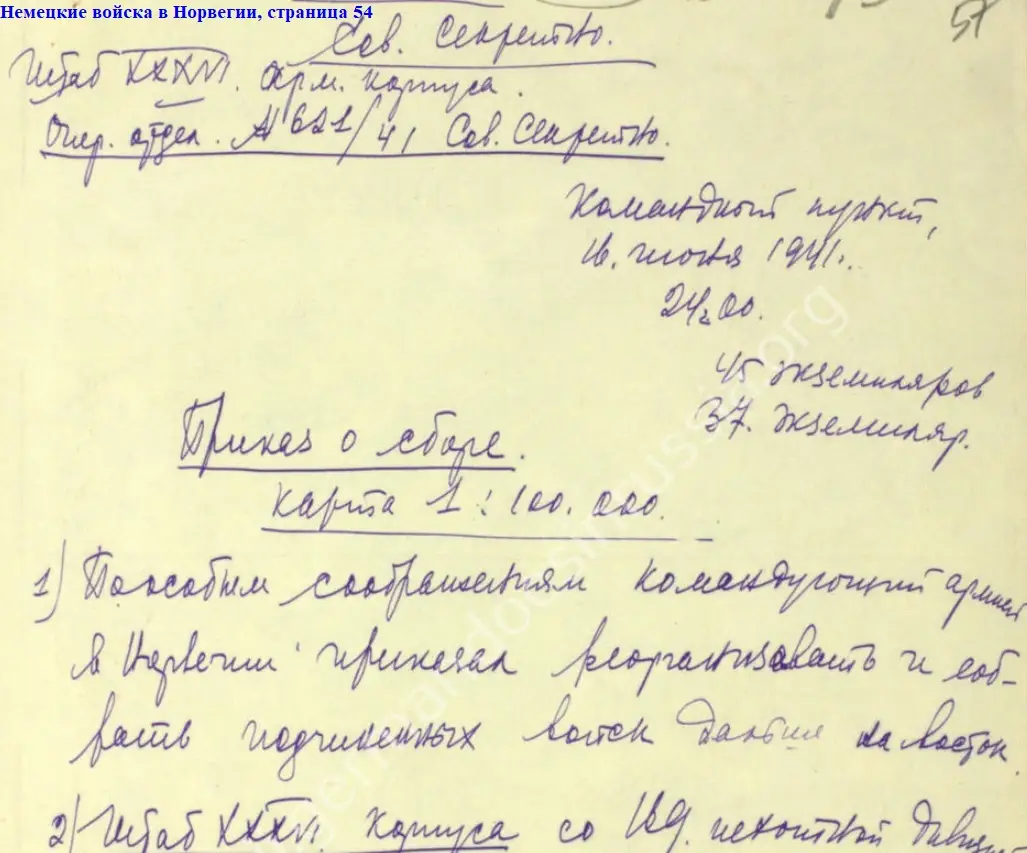 Немецкие войска в Норвегии, страница 54
57
Сов. Секретно.
Штаб XXXVI. Арм. корпуса.
Опер. отдел. № 621/41 Сов. Секретно.
Командный пункт,
16. июня 1941.
24.00.
45 экземпляров
37. экземпляр.
Приказ о сборе.
Карта 1:100.000.
1) По особым соображениям командующий армией
в Норвегии приказал реорганизовать и соб-
рать подчиненных войск дальше на восток
2) Штаб XXXVI. Корпуса со 169. пехотной дивизией